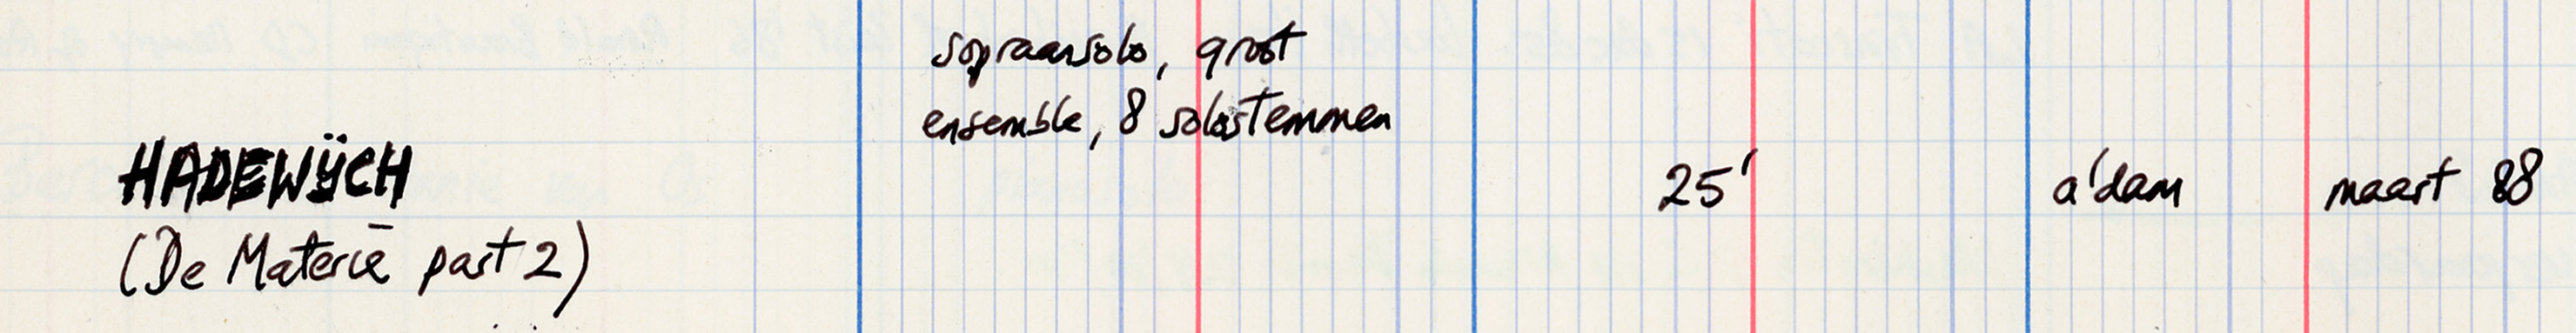 sopraansolo, groot
ensemble, 8 solostemmen
HADEWŸCH 25' a'dam maart 88
(De Materië part 2)